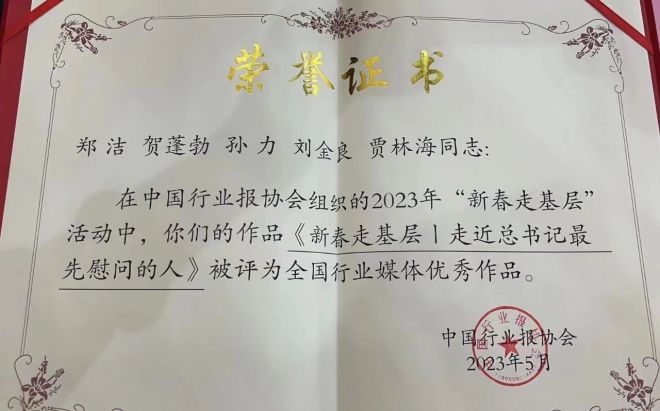 荣誉证书
郑洁 贺蓬勃 孙力 刘金良 贾林海同志:
在中国行业报协会组织的2023年“新春走基层”
活动中，你们的作品《新春走基层丨走近总书记最
先慰问的人》被评为全国行业媒体优秀作品。
中国行业报协会
2023年5月